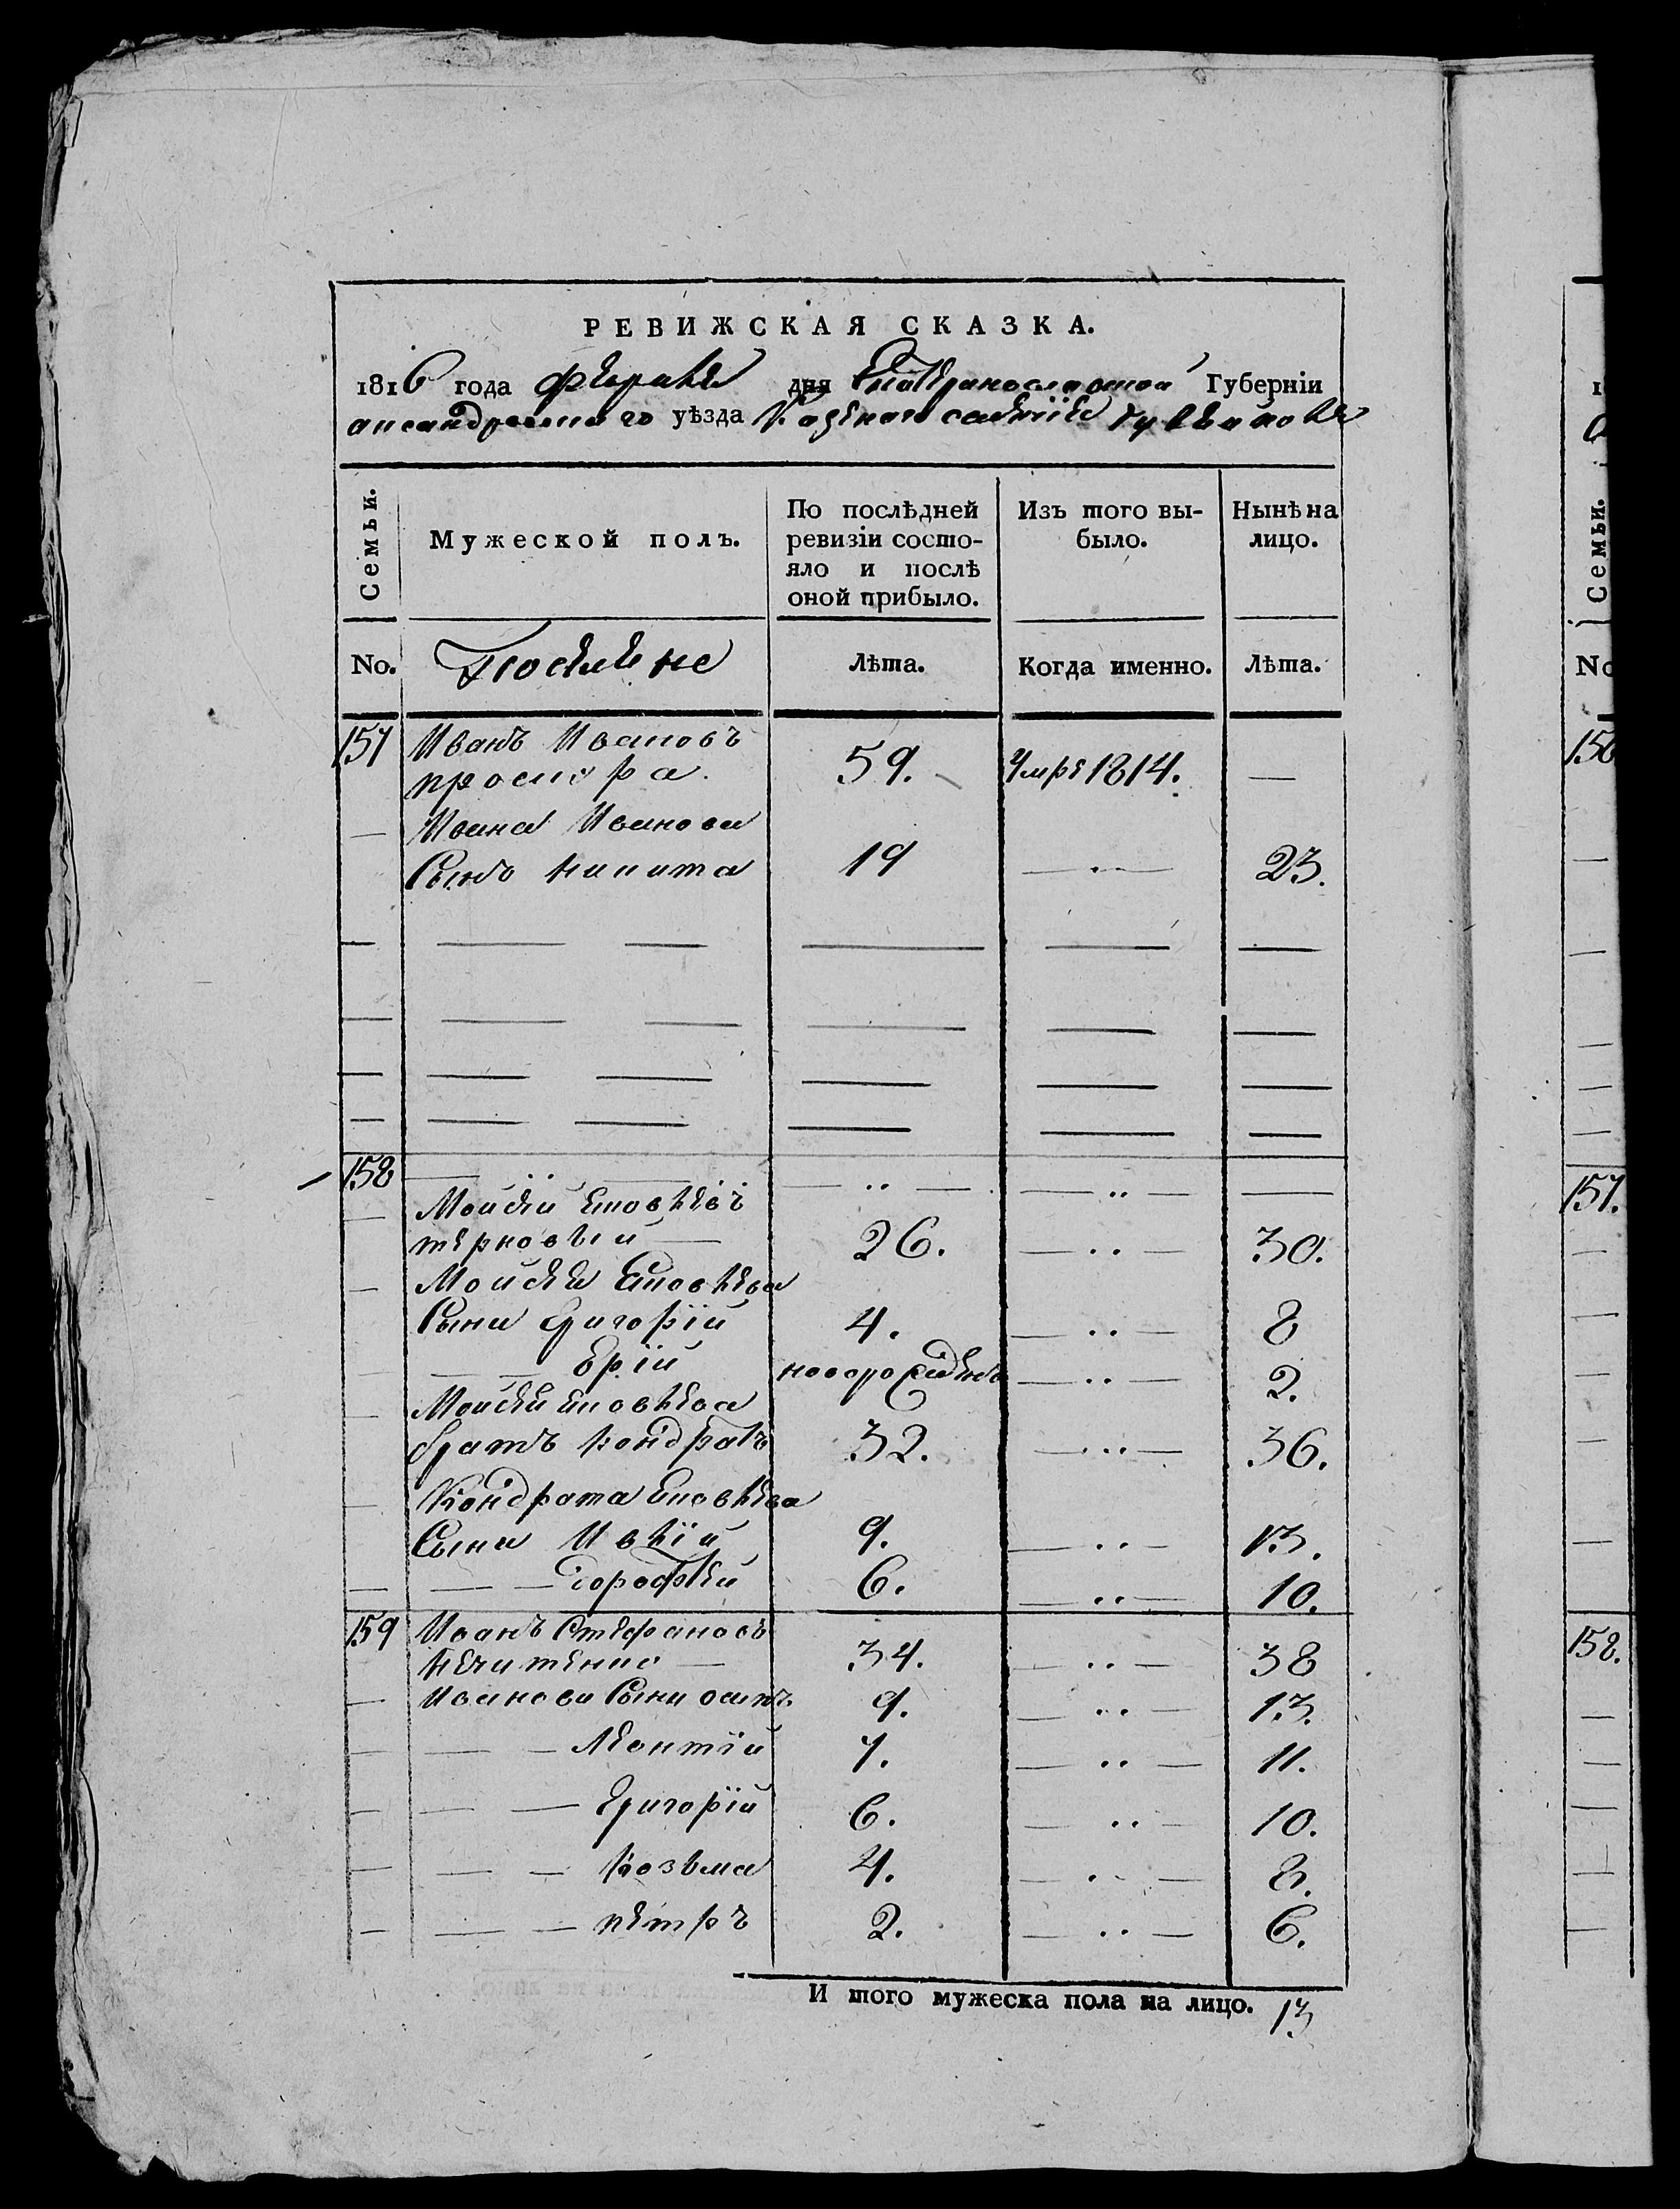 РЕВИЖСКАЯ СКАЗКА.
1816 года февраля дня Екатеринославской Губерніи
александровскаго уѣзда Казеннаго селенія гуляйполя
Семьи.
Мужеской полъ.
По послѣдней ревизіи состояло и послѣ оной прибыло.
Изъ того выбыло.
Нынѣ на лицо.
No. Поселяне Лѣта. Когда именно. Лѣта.
157 Иванъ Ивановъ
59. Умре 1814. —
— Ивана Иванова
Сынъ никита 19 — . — 23.
158
— Моисей
терновый — 26. — .. — 30.
— Моисея
Сыны Григорїй 4. — .. — 8
новорожденъ — .. — 2.
— Моисея
братъ кондратъ 32. — .. — 36.
— Кондрата
Сыны 9. — .. — 13.
— — — дорофей 6. — .. — 10.
159 Иванъ Стефановъ
— 34. — .. — 38
— Иванова Сыны осипъ 9. — .. — 13.
— — — Леонтїй 7. — .. — 11.
— — — Григорїй 6. — .. — 10.
— — — козьма 4. — .. — 8.
— — — петръ 2. — .. — 6.
И того мужеска пола на лицо. 13
Семьи.
No
156
157.
158.